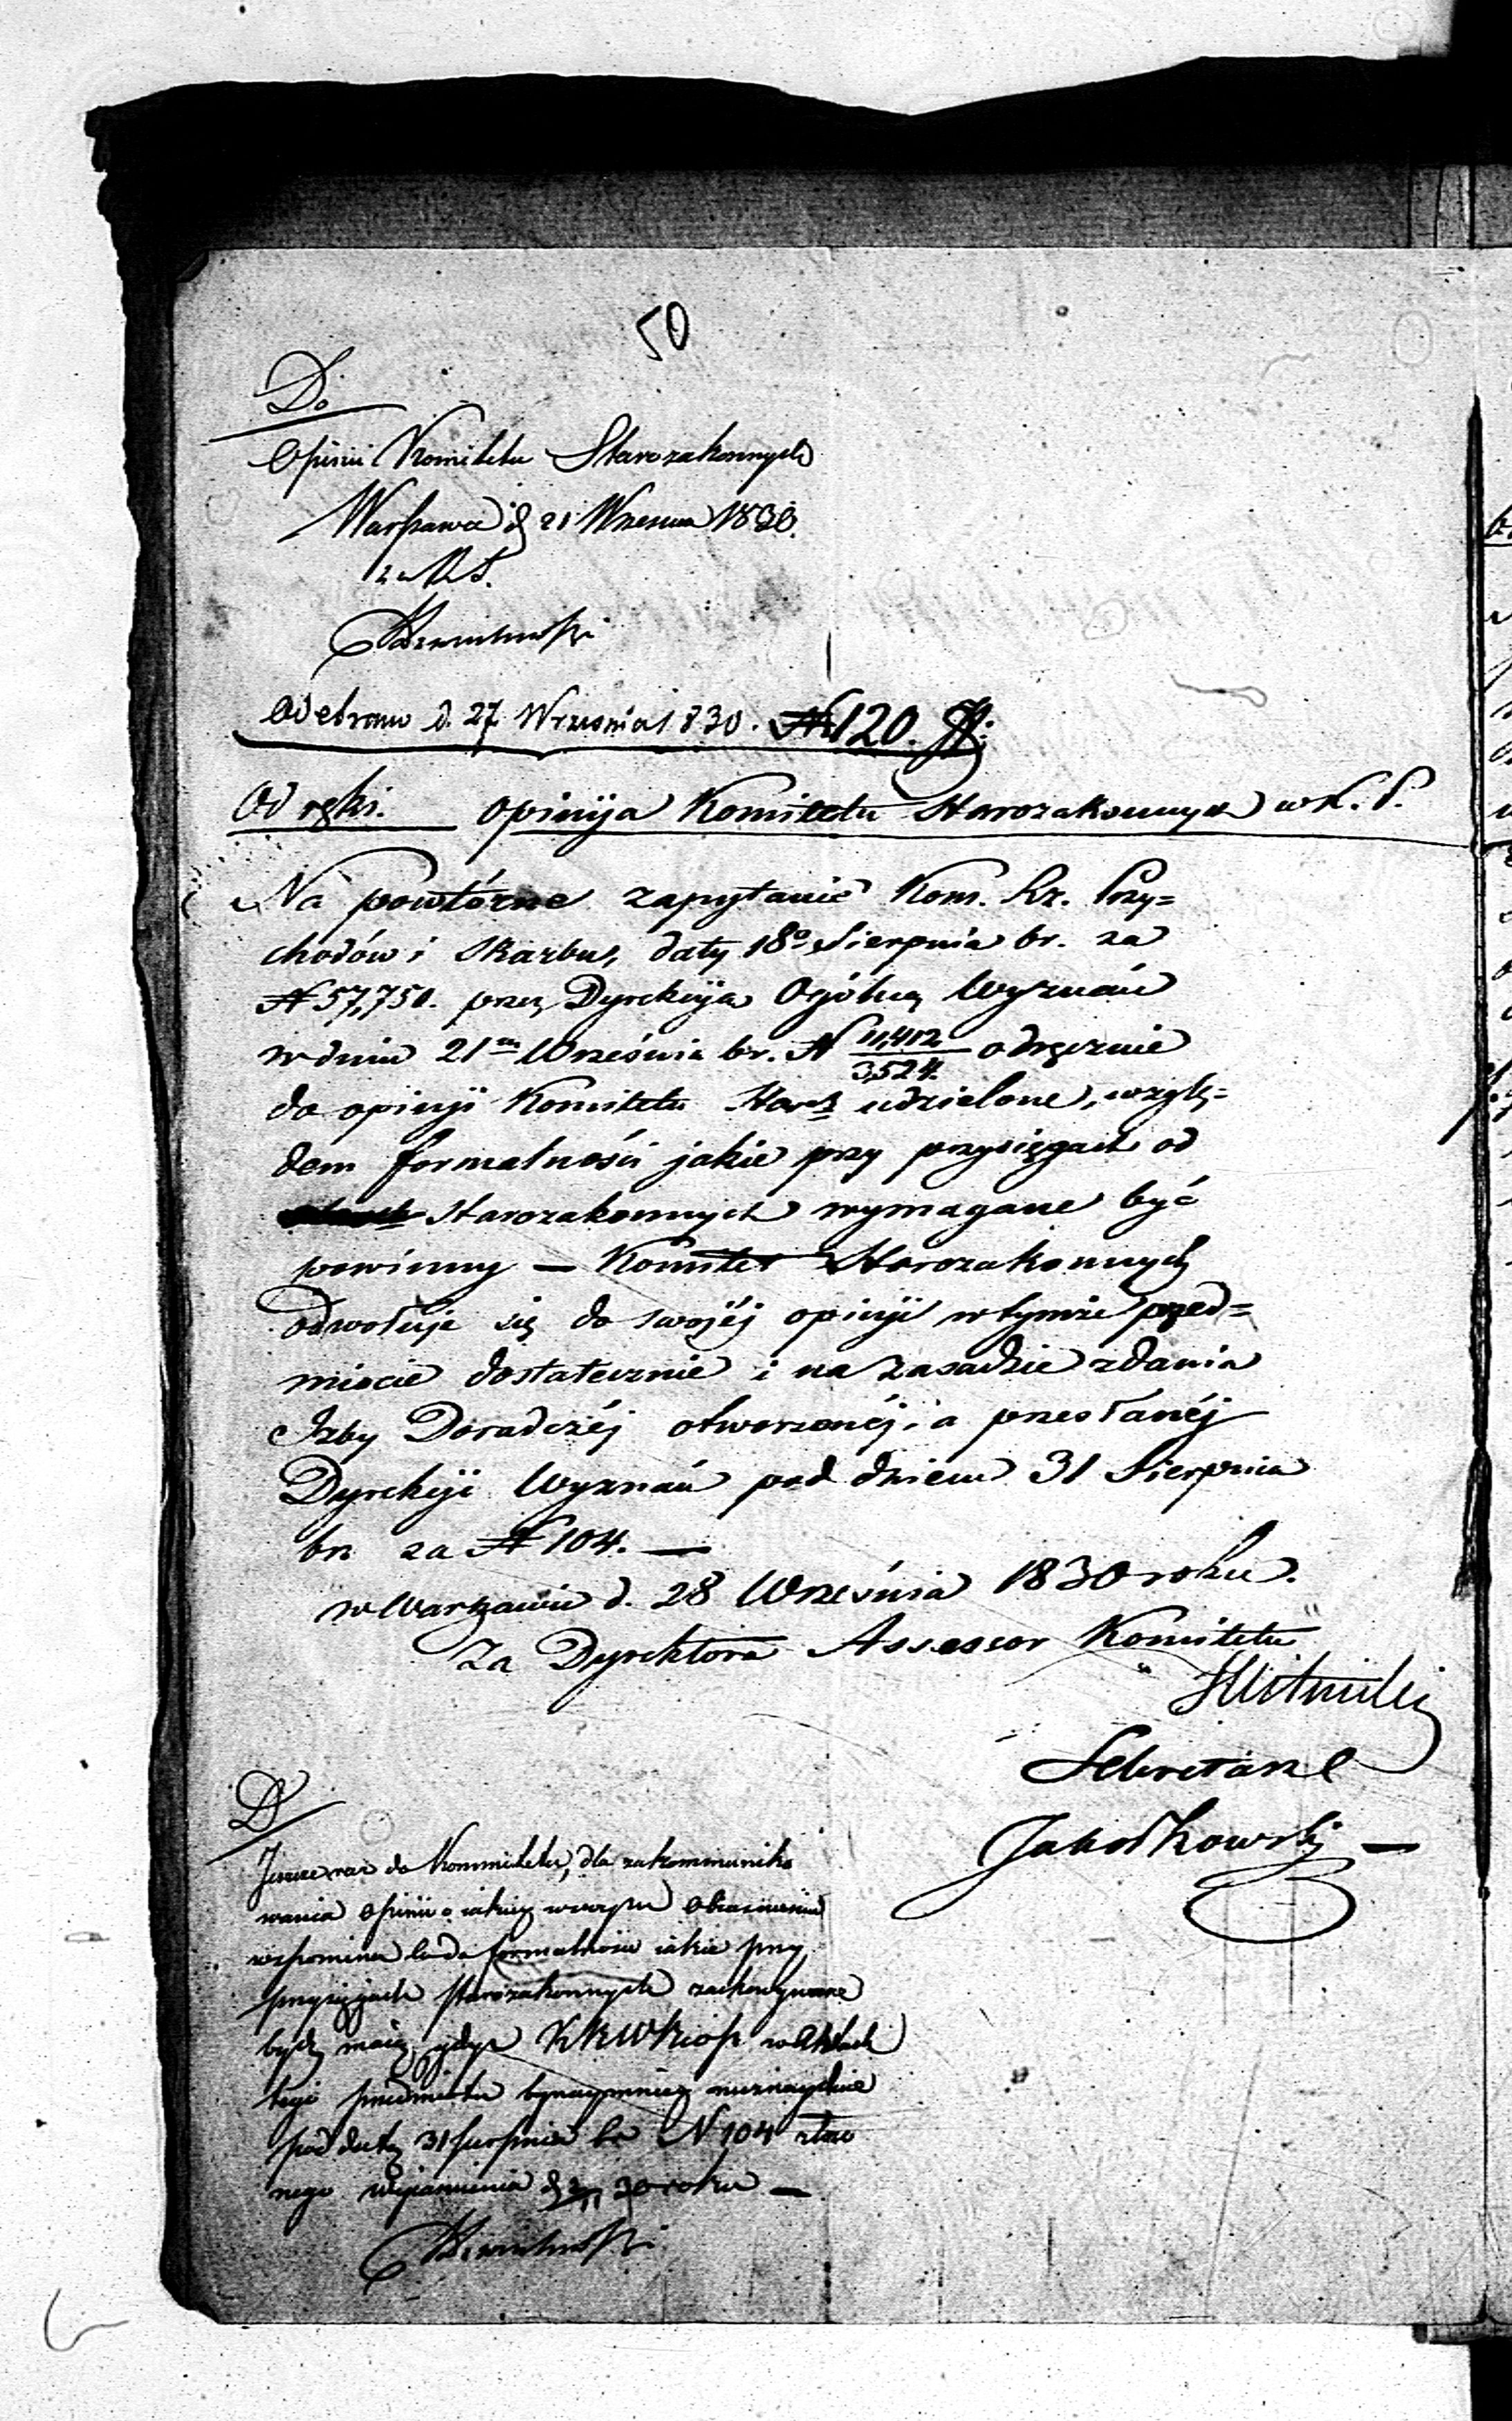 50
Do
Opinii Komitetu Starozakonnych
Warszawa d 21 Wrzesnia 1830.
Odebrano d. 27 Września 1830. N 120.
Od ręki. Opinija Komitetu Starozakonnych w K. P.
Na powtórne zapytanie Kom. Rz. Przy=
chodów i Skarbu, daty 18° Sierpnia br. za
N 57,750. przez Dyrekcyja Ogólną Wyznań
w dniu 21m Września br. N 11,412/3,524. odręcznie
do opinji Komitetu Staroz udzielone, wzglę=
dem formalności jakie przy przysięgach od
Starozakonnych wymagane być
powinny — Komitet Starozakonnych
odwołuje się do swojéj opinji w tymże przed=
miocie dostatecznie i na zasadzie zdania
Izby Doradczéj otworzonéj, a przesłanéj
Dyrekcji Wyznań pod dniem 31 Sierpnia
br. za N 104. —
w Warszawie d. 28 Września 1830 roku.
Za Dyrektora Assessor Komitetu
Sekretarz
Jakołkowski —
D
Jeszcze raz do Kommitetu, dla zakommuniko
wania opinii o jakiey w swojem objasnieniu
wspomina co do formalności jakie przy
przysięgach starozakonnych zachowywane
bydź maią, gdyż KRWRiOP w Aktach
tego przedmiotu bynaymniey nieznayduie
pod datą 31 Sierpnia br N 104 złożo
nego wyjasnienia d 30 roku —